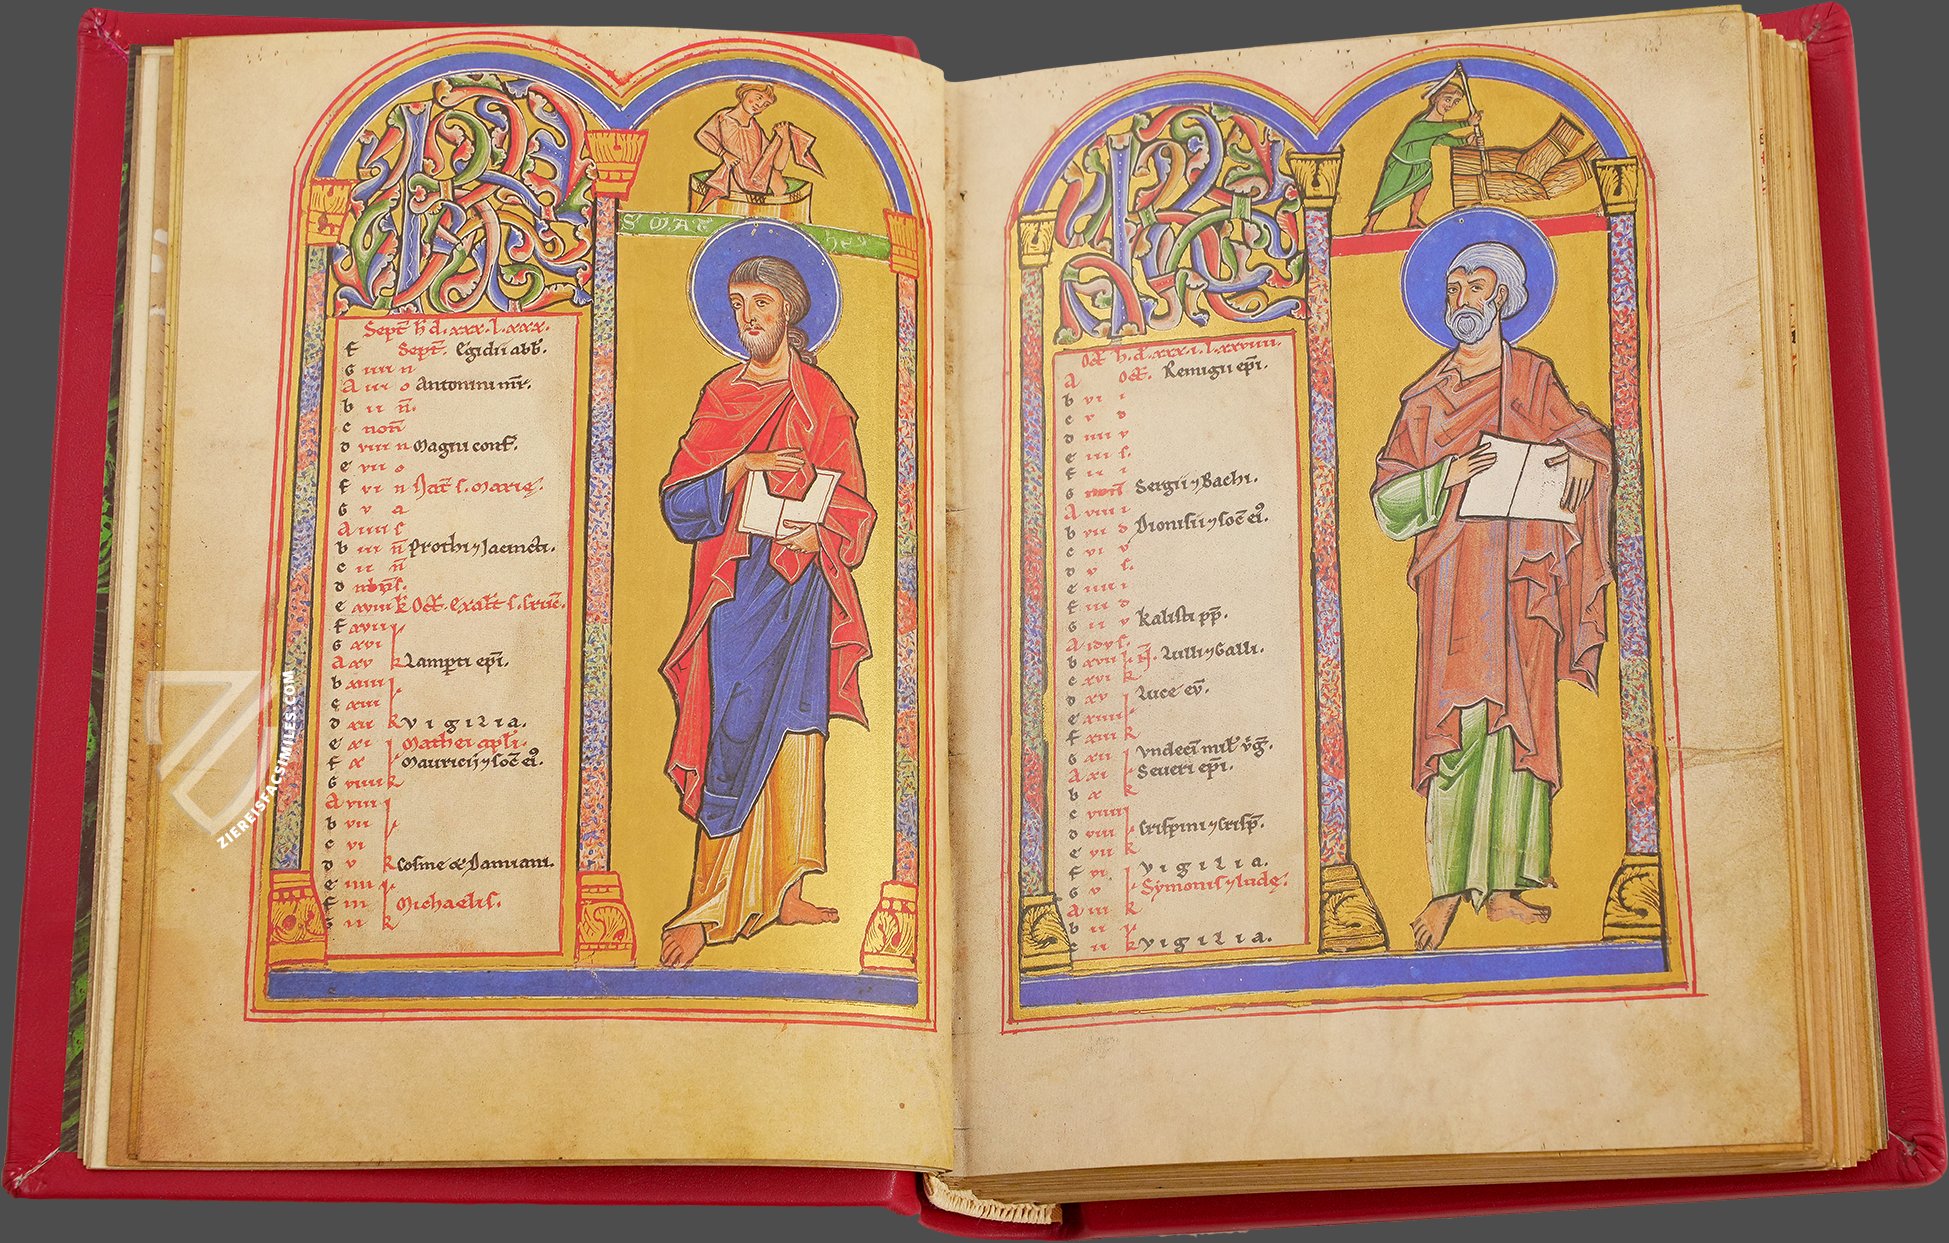 KL
Sʼ MAT heꝰ
Sept̄ h̄ d. xxx. l. xxx.
f Sept̄. Egidii abb̄.
G iiii n
A iii o Antonini mr̄.
b ii n̄.
c non̄
d viii n Magni conf̄.
e vii o
f vi n Nat̄ s. Marię.
G v a
A iiii s
b iii n̄ Prothi ⁊ Jacincti.
c ii n̄
d
e xviii k̄ Oct̄. Exalt̄ s. Cruc̄.
f xvii
G xvi
A xv k Lamp̱ti ep̄i.
b xiiii
c xiii
d xii k vigilia.
e xi Mathei apl̄i.
f x Mauricii ⁊ soc̄ ei⁹.
G viiii k
A viii
b vii
c vi
d v k Cosme & Damiani.
e iiii
f iii Michaelis.
G ii k
KL
Oct̄ h. d. xxx.i. l. xxviiii.
A Oct̄. Remigii ep̄i.
b vi i
c v d
d iiii v
e iii s.
f ii i
G non̄ Sergii ⁊ Bachi.
A viii i
b vii d Dionisii ⁊ soc̄ ei⁹.
c vi v
d v s.
e iiii i
f iii d
G ii v Kalisti pp̄.
A idvs.
b xvii Lulli ⁊ Galli.
c xvi k
d xv Luce ev̄.
e xiiii
f xiii k
G xii Vndeci mil̄ v̄g̅.
A xi Seueri ep̄i.
b x k
c viiii
d viii Crispini ⁊ Crisp̄.
e vii k
f vi vigilia.
G v Symonis ⁊ Iudę.
A iiii k
b iii
c ii k vigilia.
ZIEREISFACSIMILES.COM